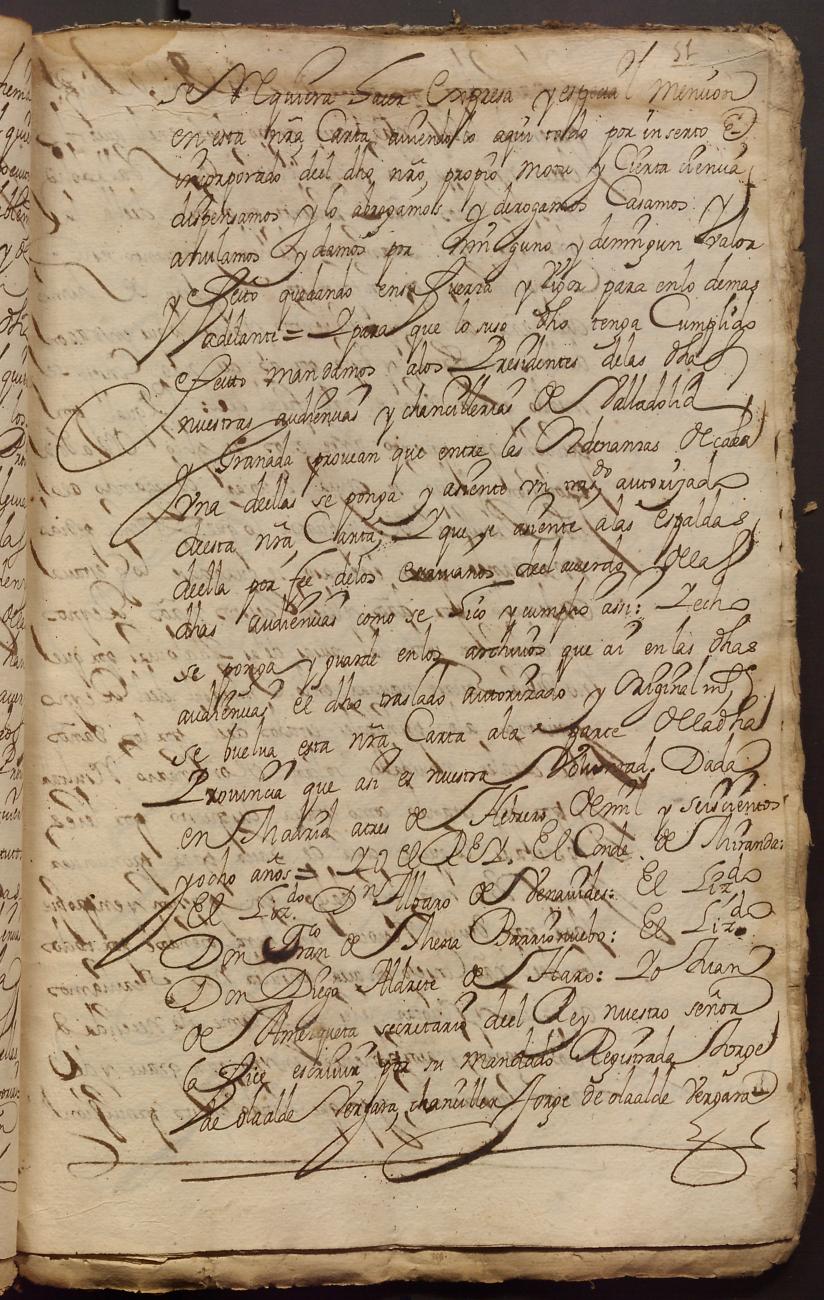 51
se Requiera haçer Expresa y especial mençion
en esta nrã Carta aviendolo aqui todo por inserto E
incorporado deel dho nrõ propio motu y Çierta çiençia
dispensamos y lo abrogamos y derogamos Casamos y
anulamos y damos por ninguno y de ningun valor
y efeito quedando en su fuerza y vigor para en lo demas
adelante = Y para que lo suso dho tenga Cumplido
efeito mandamos alos Presidentes delas dhas
nuestras audiençias y chançillerias de Valladolid
y Granada provean que entre las Ordenanzas de cada
una deellas se ponga y asiente un trasdo autorizado
deesta nrã Carta; Y que se asiente a las espaldas
deella por fee delos escrivanos deel acuerdo de las
dhas audiençias como se hiço y cumplio assi: Y echo
se ponga y guarde en los archivos que ai en las dhas
audiençias el dho traslado autorizado y Original mte
se buelva esta nrã Carta a la parte de la dha
Provinçia que asi es nuestra Voluntad. Dada
en Madrid a tres de Hebrero de mil y seisçientos
y ocho años = YO EL REY. El Conde de Miranda:
El Lizdo Dn Alvaro de Venavides: El Lizdo
Don Franco de Mena Barrionuebo: El Lizdo
Don Diego Aldrete de Haro: Yo Juan
de Amezqueta secretario deel Rey nuestro señor
la Fice escrivir por su mandado Registrada Jorge
de olaalde Vergara, chançiller Jorge de olaalde Vergara